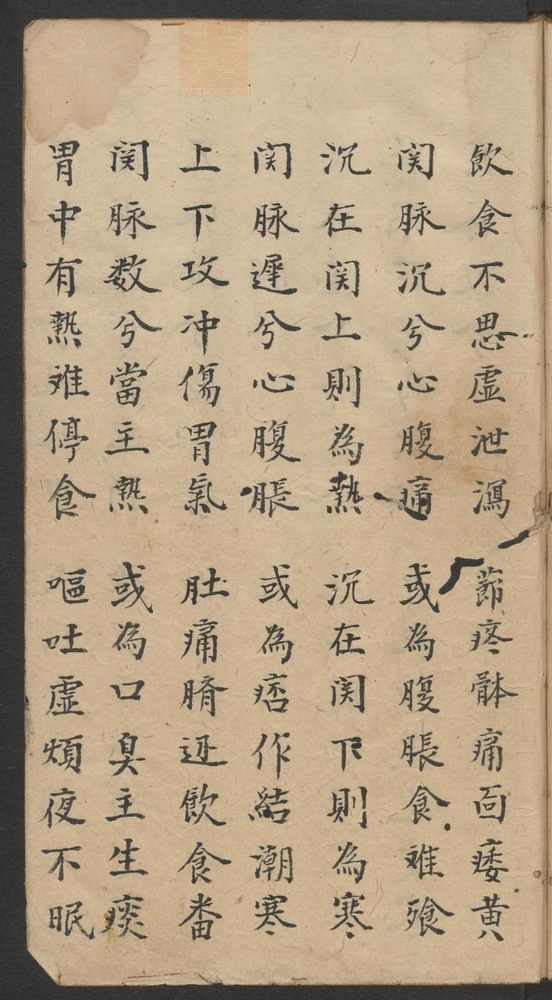 飲食不思虛泄瀉 節疼骵痛面痿黄
関脉沉兮心腹痛 或為腹脹食难飱
沉在関上則為熱 沉在関下則為寒
関脉遲兮心腹脹 或為痞作結潮寒
上下攻冲傷胃氣 肚痛臍迊飲食畨
関脉数兮當主熱 或為口臭主生痰
胃中有熱难停食 嘔吐虛煩夜不眠